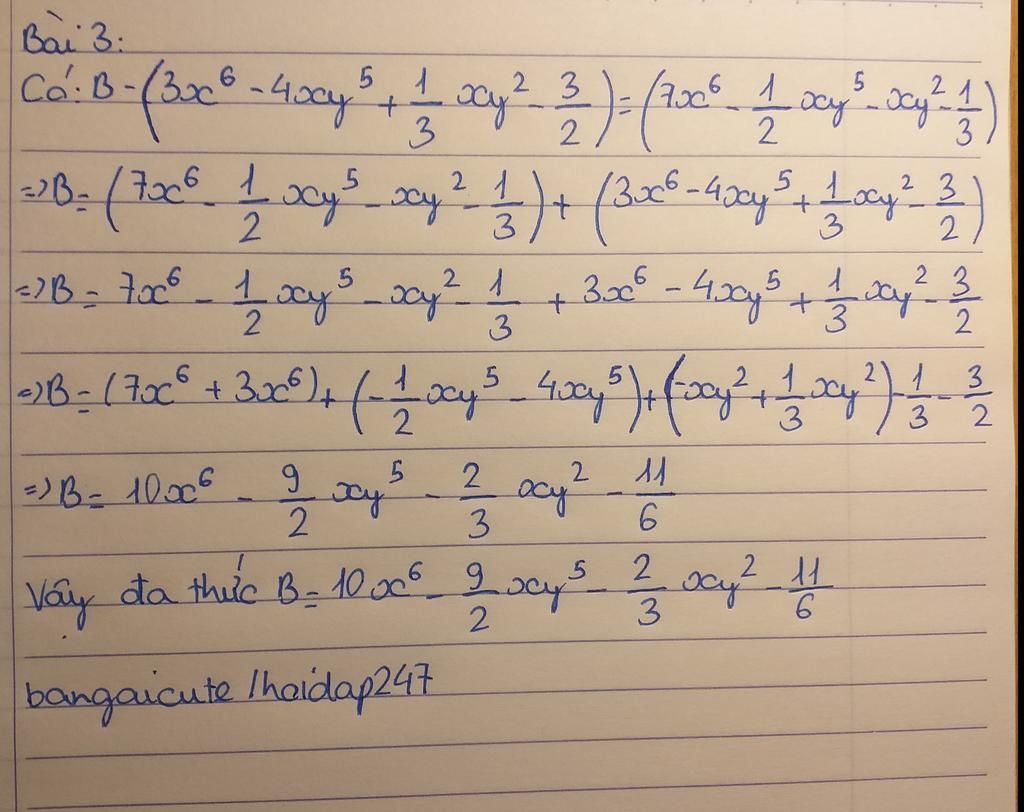 Bài 3:
Có: B - (3x⁶ - 4xy⁵ + 1/3 xy² - 3/2) = (7x⁶ - 1/2 xy⁵ - xy² - 1/3)
=> B = (7x⁶ - 1/2 xy⁵ - xy² - 1/3) + (3x⁶ - 4xy⁵ + 1/3 xy² - 3/2)
=> B = 7x⁶ - 1/2 xy⁵ - xy² - 1/3 + 3x⁶ - 4xy⁵ + 1/3 xy² - 3/2
=> B = (7x⁶ + 3x⁶) + (-1/2 xy⁵ - 4xy⁵) + (-xy² + 1/3 xy²) - 1/3 - 3/2
=> B = 10x⁶ - 9/2 xy⁵ - 2/3 xy² - 11/6
Vậy đa thức B = 10x⁶ - 9/2 xy⁵ - 2/3 xy² - 11/6
bangaicute /hoidap247